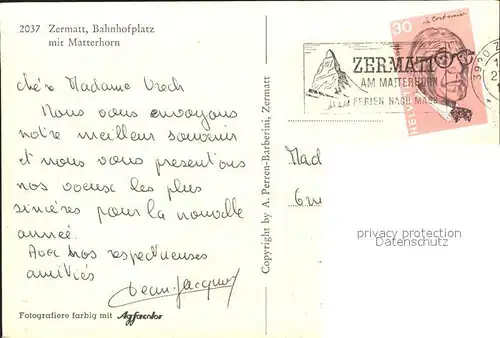 2037 Zermatt, Bahnhofplatz
mit Matterhorn
chère Madame Urech
Nous vous envoyons
notre meilleur souvenir
et nous vous presentons
nos voeux les plus
sincères pour la nouvelle
année.
Avec nos respectueuses
amitiés
Jean-Jacques
Fotografiere farbig mit Agfacolor
Copyright by A. Perren-Barberini, Zermatt
ZERMATT
AM MATTERHORN
FERIEN NACH MASS
3920 Z
30
Le Corbusier
HELV
Mad
privacy protection
Datenschutz